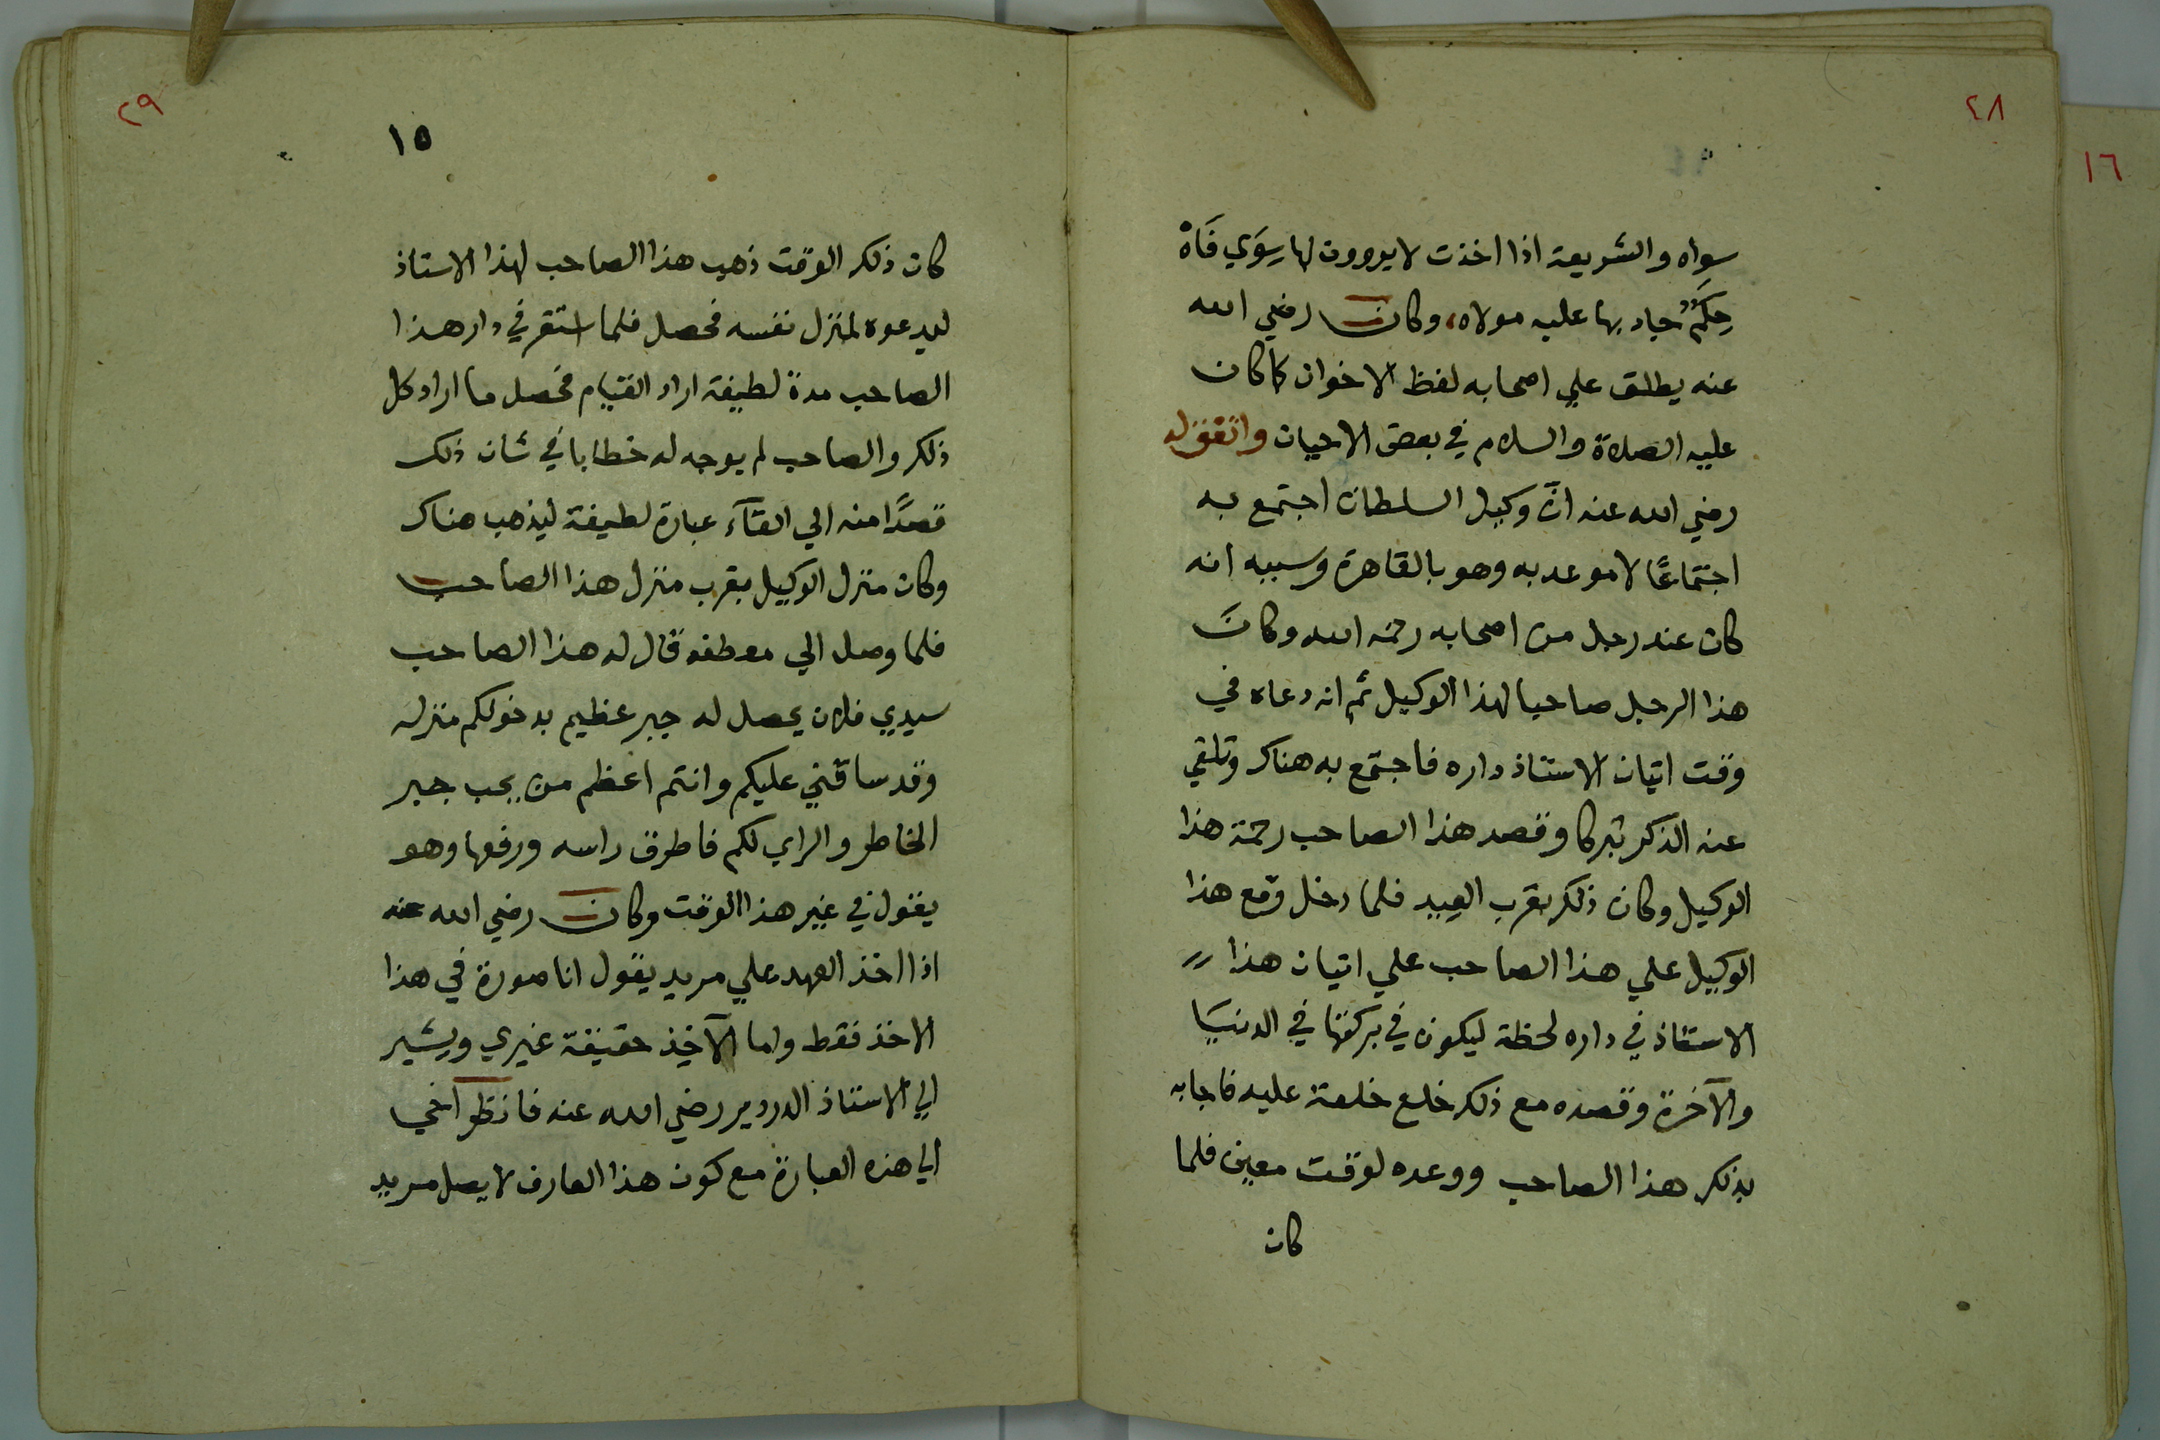 ٢٨
١٦
سواه والشريعة اذا اخذت لا يرون لها سِوَي فَاهْ
حِكَمٌ جاد بها عليه مولاه، وكان رضي الله
عنه يطلق علي اصحابه لفظ الاخوان كما كان
عليه الصلاة والسلام في بعض الاحيان واتفق له
رضي الله عنه انَّ وكيل السلطان اجتمع به
اجتماعًا لا موعد به وهو بالقاهرة وسببه انه
كان عند رجل من اصحابه رحمه الله وكانَ
هذا الرجل صاحبا لهذا الوكيل ثم انه دعاه في
وقت اتيان الاستاذ داره فاجتمع به هناك وتلقي
عنه الذكر تبركا وقصد هذا الصاحب رحمة هذا
الوكيل وكان ذلك بقرب العيد فلما دخل وقع هذا
الوكيل علي هذا الصاحب علي اتيان هذا
الاستاذ في داره لحظة ليكون في بركتها في الدنيا
والآخرة وقصده مع ذلك خلع خلعة عليه فاجابه
بذلك هذا الصاحب ووعده لوقت معين فلما
كان
٢٩
١٥
كان ذلك الوقت ذهب هذا الصاحب لهذا الاستاذ
ليدعوه لمنزل نفسه فحصل فلما استقر في دار هذا
الصاحب مدة لطيفة اراد القيام فحصل ما اراد كل
ذلك والصاحب لم يوجه له خطابا في شان ذلك
قصدًا منه الي القآء عبارة لطيفة ليذهب هناك
وكان منزل الوكيل بقرب منزل هذا الصاحب
فلما وصل الي معطفه قال له هذا الصاحب
سيدي فلان يحصل له جبر عظيم بدخولكم منزله
وقد ساقني عليكم وانتم اعظم من يحب جبر
الخاطر والراي لكم فاطرق راسه ورفعها وهو
يقول في غير هذا الوقت وكان رضي الله عنه
اذا اخذ العهد علي مريد يقول انا صورة في هذا
الاخذ فقط واما الآخِذ حقيقة غيري ويشير
الي الاستاذ الدردير رضي الله عنه فانظر اخي
الي هذه العبارة مع كون هذا العارف لا يصل مريد